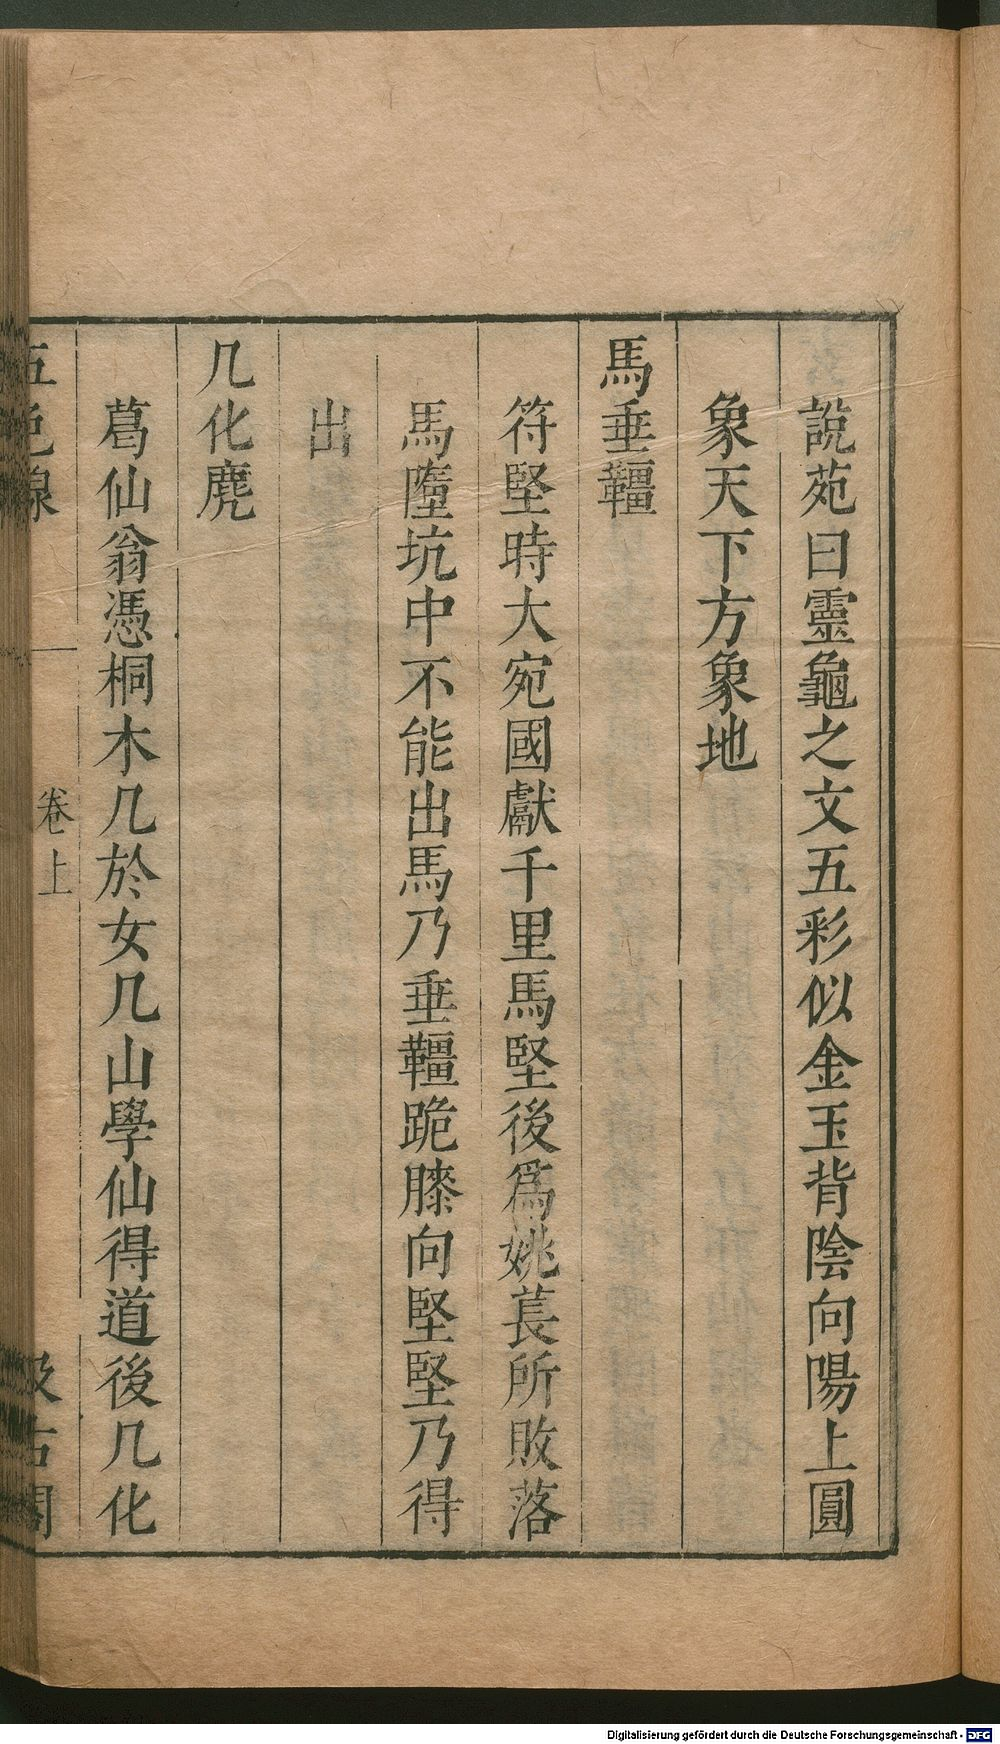 說苑曰靈龜之文五彩似金玉背陰向陽上圓
象天下方象地
馬垂韁
符堅時大宛國獻千里馬堅後爲姚萇所敗落
馬墮坑中不能出馬乃垂韁跪膝向堅堅乃得
出
几化麂
葛仙翁憑桐木几於女几山學仙得道後几化
五色線 卷上 汲古閣
Digitalisierung gefördert durch die Deutsche Forschungsgemeinschaft - DFG